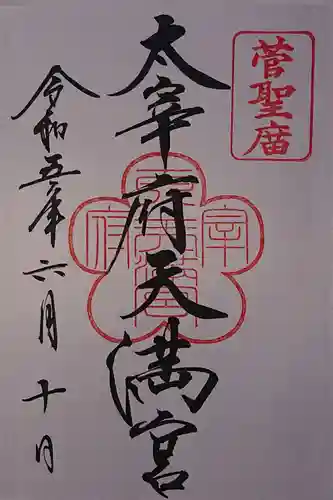 菅聖廟
太宰府天満宮
令和五年六月十日